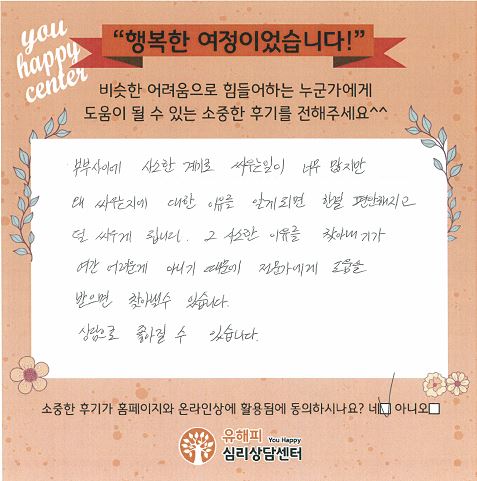 you
happy
center
“행복한 여정이었습니다!”
비슷한 어려움으로 힘들어하는 누군가에게
도움이 될 수 있는 소중한 후기를 전해주세요^^
부부사이에 사소한 계기로 싸우는일이 너무 많지만
왜 싸우는지에 대한 이유를 알게되면 한결 편안해지고
덜 싸우게 됩니다. 그 사소한 이유를 찾아내기가
여간 어려운게 아니기 때문에 전문가에게 도움을
받으면 찾아낼수 있습니다.
상담으로 좋아질 수 있습니다.
소중한 후기가 홈페이지와 온라인상에 활용됨에 동의하시나요? 네 아니오
유해피 You Happy
심리상담센터